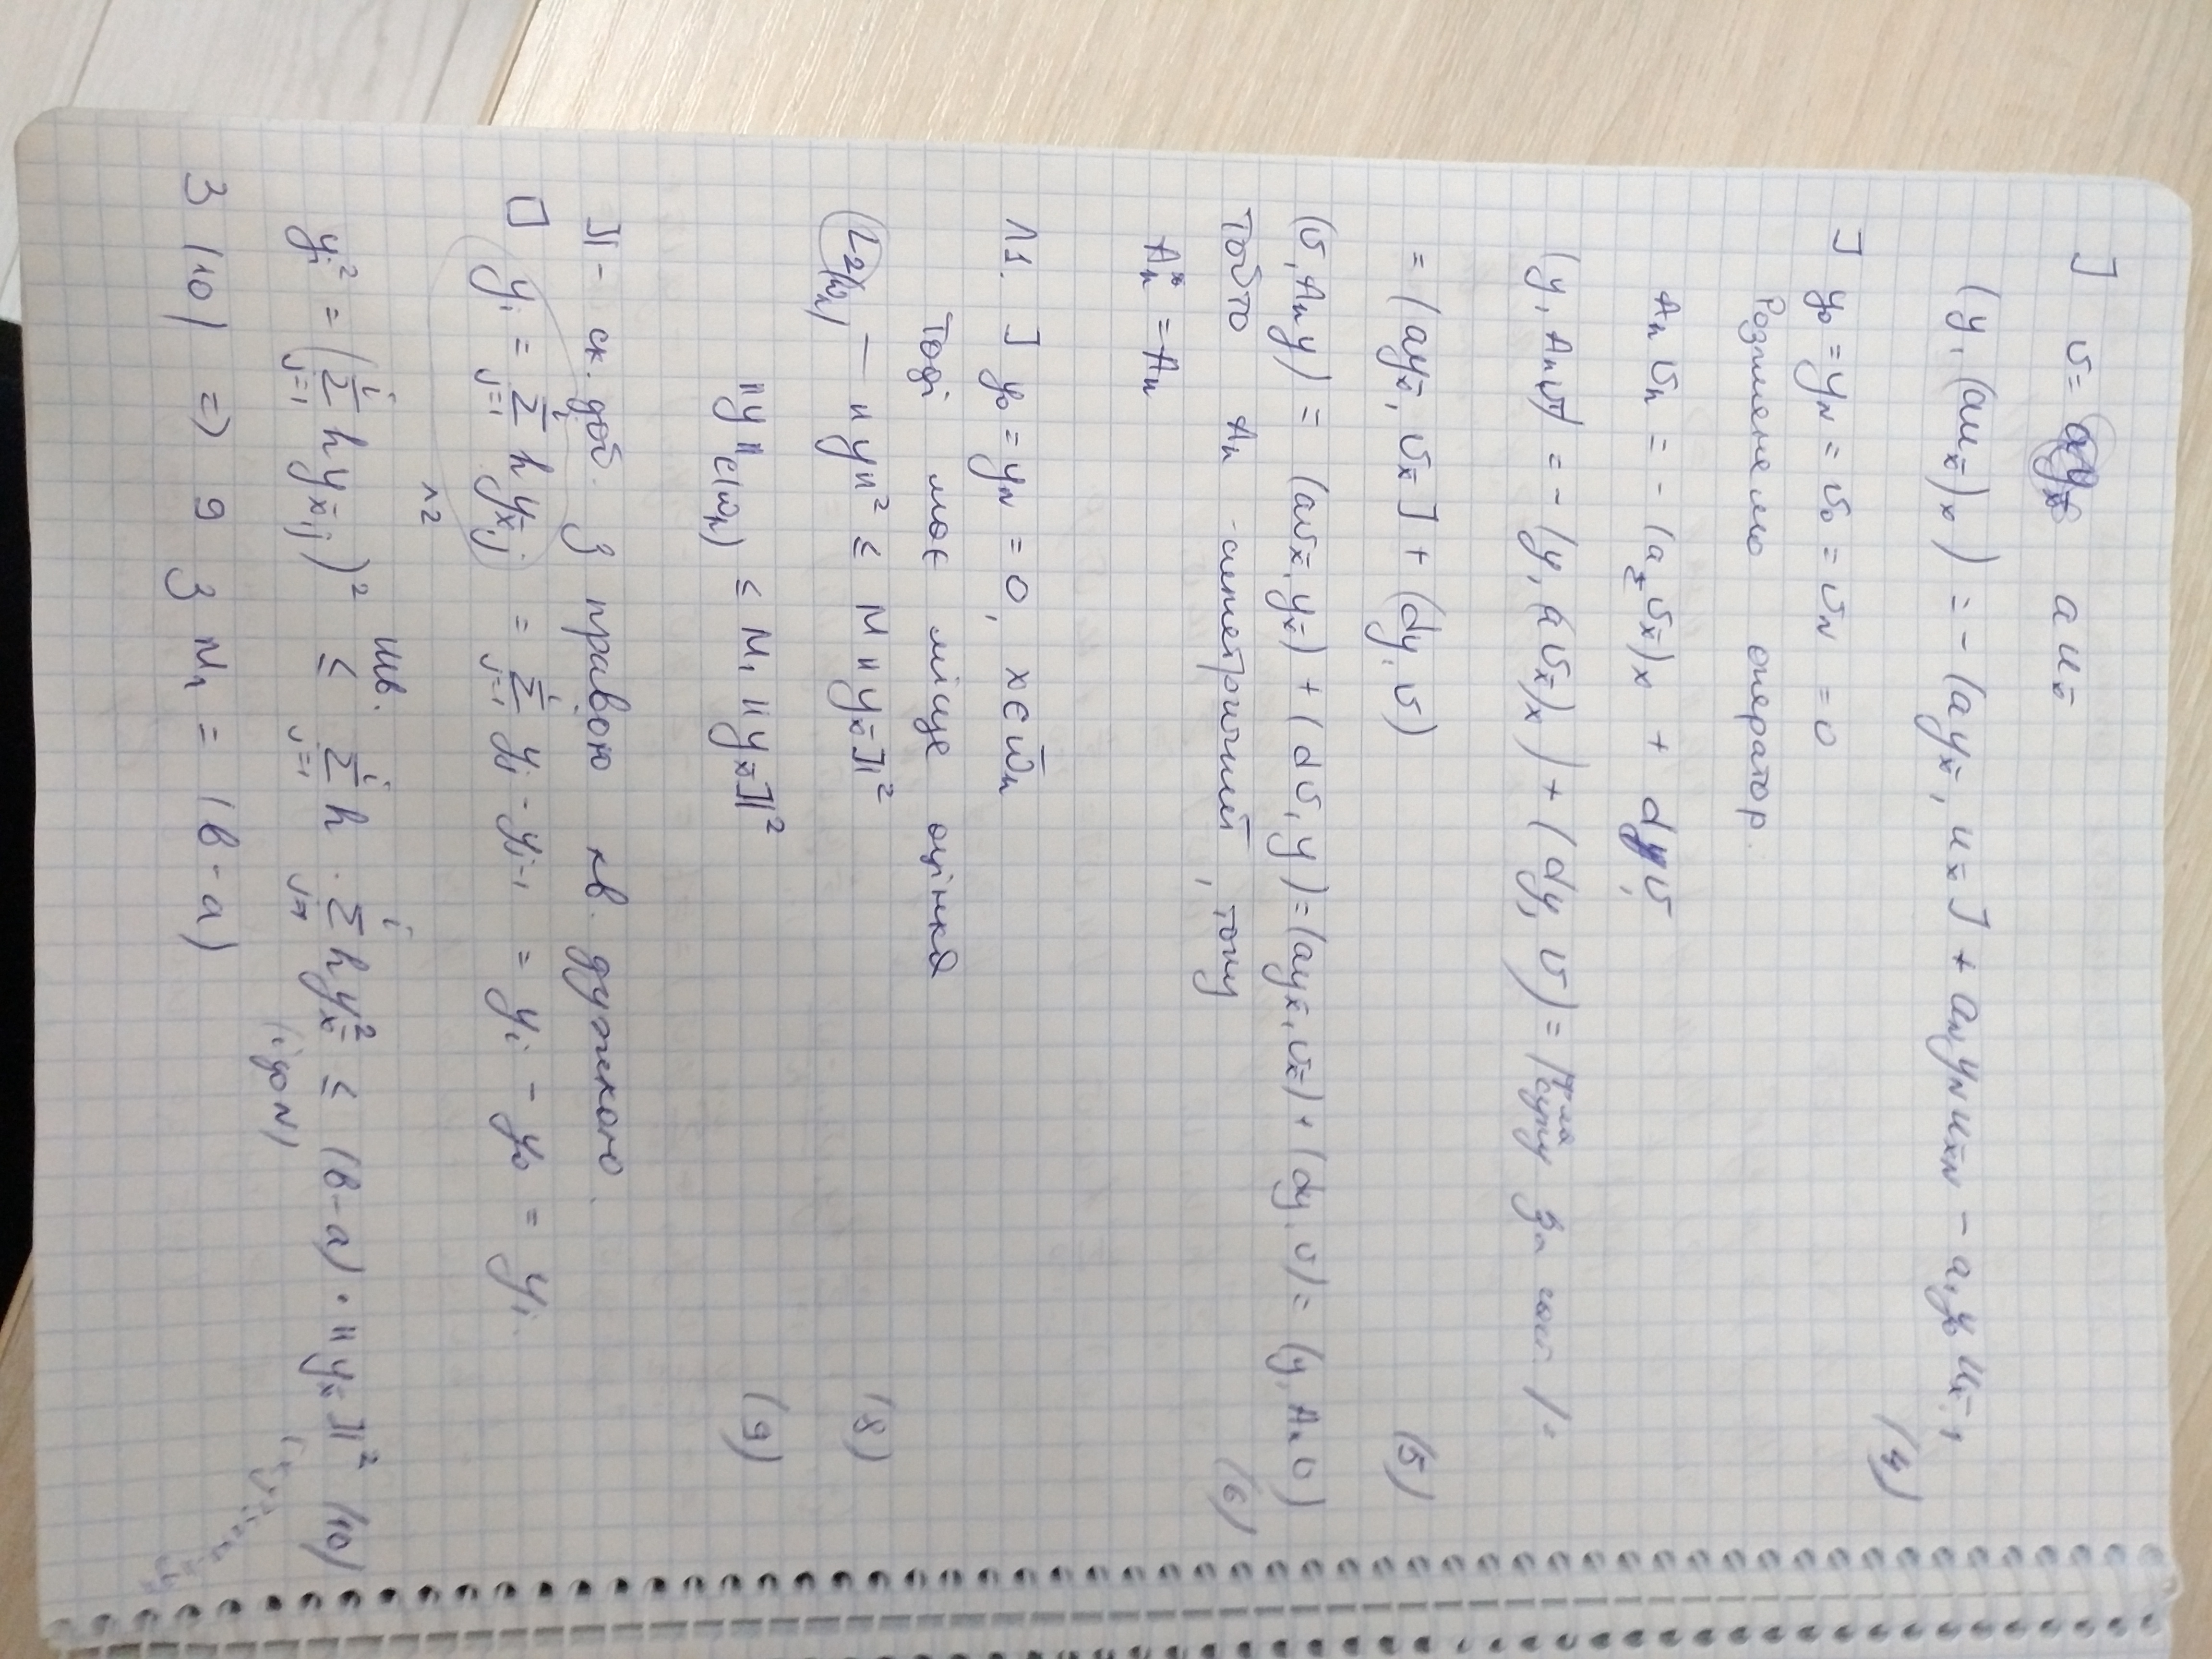 ] υ = a u_x̄
(y, (a u_x̄)_x) = - (a y_x̄, u_x̄] + a_N y_N u_x̄N - a_1 y_0 u_x̄,1
(4)
] y_0 = y_N = υ_0 = υ_N = 0
Розглянемо оператор
A_h υ_h = - (a υ_x̄)_x + d υ
(y, A_h υ) = - (y, (a υ_x̄)_x) + (dy, υ) =
= (a y_x̄, υ_x̄] + (dy, υ) (5)
(υ, A_h y) = (a υ_x̄, y_x̄) + (d υ, y) = (a y_x̄, υ_x̄) + (dy, υ) = (y, A_h υ)
Тобто A_h - симетричний, тому (6)
A_h^* = A_h
Л1. ] y_0 = y_N = 0, x ∈ ω̄_h
Тоді має місце оцінка
(L_2(ω_h)) — ||y||² ≤ M ||y_x̄]|² (8)
||y||_C(ω̄_h) ≤ M_1 ||y_x̄]|² (9)
]| - ск. доб. з правою кв. дужкою.
□ y_i = Σ_{j=1}^{i} h y_x̄,j = Σ_{j=1}^{i} y_j - y_{j-1} = y_i - y_0 = y_i
y_i² = (Σ_{j=1}^{i} h y_x̄,j)² ≤ Σ_{j=1}^{i} h · Σ_{j=1}^{i} h y_x̄² ≤ (b-a) · ||y_x̄]|² (10)
(i до N)
З (10) => 9 з M_1 = (b-a)